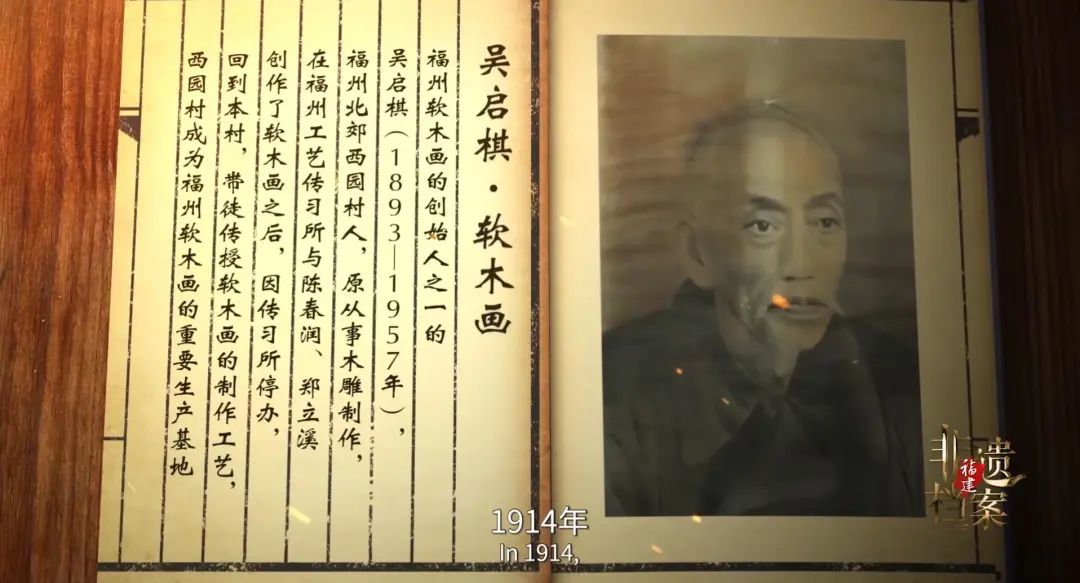 吴启棋·软木画
福州软木画的创始人之一的
吴启棋（1893—1957年），
福州北郊西园村人，原从事木雕制作，
在福州工艺传习所与陈春润、郑立溪
创作了软木画之后，因传习所停办，
回到本村，带徒传授软木画的制作工艺，
西园村成为福州软木画的重要生产基地
福建
非遗
档案
1914年
In 1914,